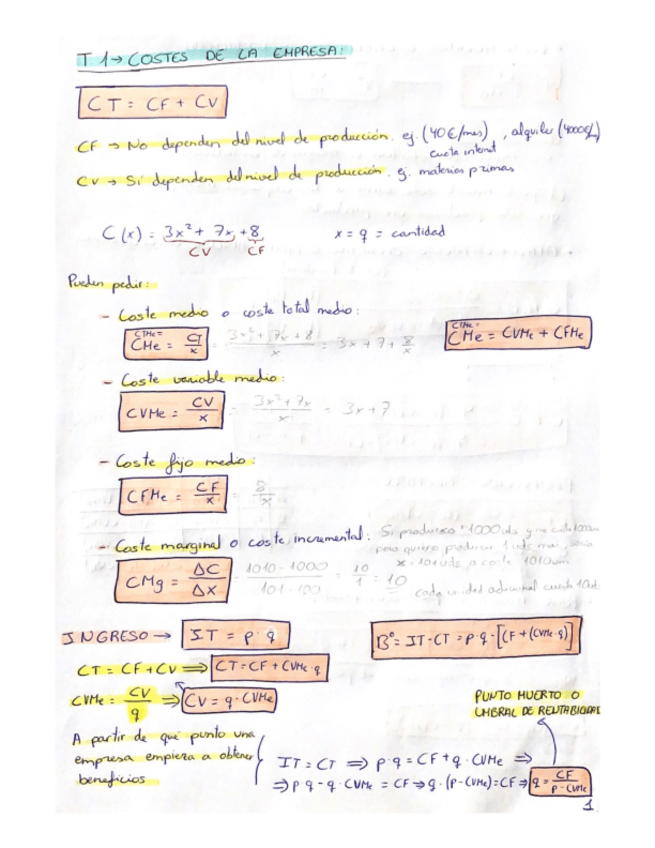 T 1 → COSTES DE LA EMPRESA:
CT = CF + CV
CF → No dependen del nivel de producción. ej. (40€/mes), alquiler (4000€/
cuota internet
CV → Sí dependen del nivel de producción. ej. materias primas
C(x) = 3x² + 7x + 8    x = q = cantidad
CV CF
Pueden pedir:
- Coste medio o coste total medio:
CTMe =
CMe = CT/x = 3x² + 7x + 8 / x = 3x + 7 + 8/x
CTMe =
CMe = CVMe + CFMe
- Coste variable medio:
CVMe = CV/x = 3x² + 7x / x = 3x + 7
- Coste fijo medio:
CFMe = CF/x = 8/x
- Coste marginal o coste incremental: Si produzco 1000 uds y me cuesta
pero quiero producir 1 uds más, sería
x = 101 uds, a coste 1010um
CMg = ΔC/Δx = 1010 - 1000 / 101 - 100 = 10/1 = 10
cada unidad adicional cuesta 10
INGRESO → IT = p · q
Bº = IT - CT = p · q - [CF + (CVMe · q)]
CT = CF + CV ⟹ CT = CF + CVMe · q
CVMe = CV/q ⟹ CV = q · CVMe
PUNTO MUERTO O
UMBRAL DE RENTABILIDAD
A partir de qué punto una
empresa empieza a obtener
beneficios
IT = CT ⟹ p · q = CF + q · CVMe ⟹
⟹ p q - q · CVMe = CF → q · (p - CVMe) = CF → q = CF / p - CVMe
1